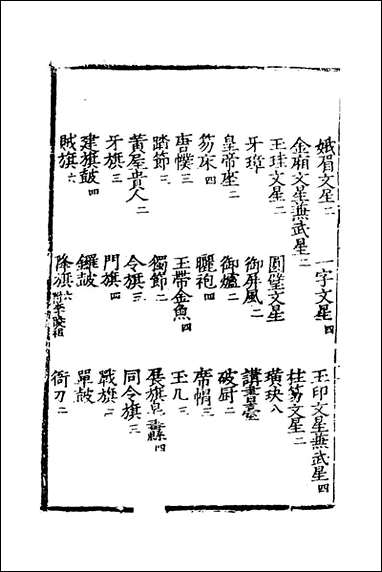 娥眉文星二 一字文星四 玉印文星兼武星四
金廂文星兼武星二 圓璧文星 桂笏文星二
玉珪文星二 御屏風二 璜玦八
牙璋 御爐二 講書臺
皇帝座二 曬袍四 破厨二
笏床四 玉帶金魚四 席帽三
唐幞三 獨節二 玉几三
踏節三 令旗三 展旗
黃屋貴人二 門旗四 同令旗三
牙旗三 鑼鼓 戰旗
建旗鼓四 降旗六 單鼓
賊旗六 衙刀二